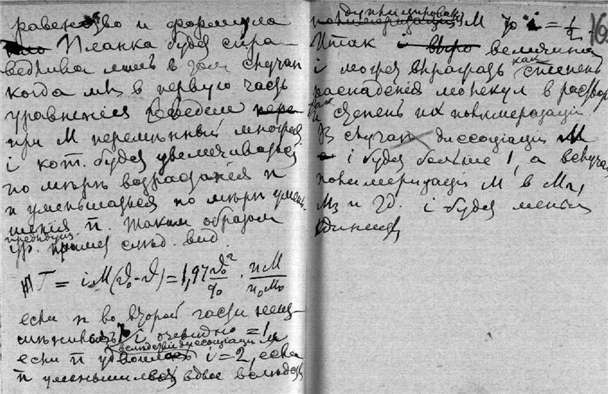 равенство и формула
Планка будет спра-
ведлива лишь в том случае
когда мы в первую часть
уравнения введем
при М переменный множит.
i кот. будет увеличиваться
по мѣрѣ возрастания n
и уменьшаться по мѣрѣ умень-
шения n. Таким образом
предыдущ.
ур. примет слѣд. вид.
T = iM(ϑ₀-ϑ) = 1,97 ϑ₀²/q₀ · nM/n₀M₀
если n во второй части
то i очевидно = 1,
вследствие диссоциации М
если n i = 2, если
n уменьшилась вдвое вследств
М то i = 1/2
Итак i величина
i может выражать как степень
распадения молекул в раствор
так и степень их полимеризации
В случае диссоциации М
i будет больше 1, а в случае
полимеризации М в М₂,
М₃ и т.д. i будет меньше
единицы